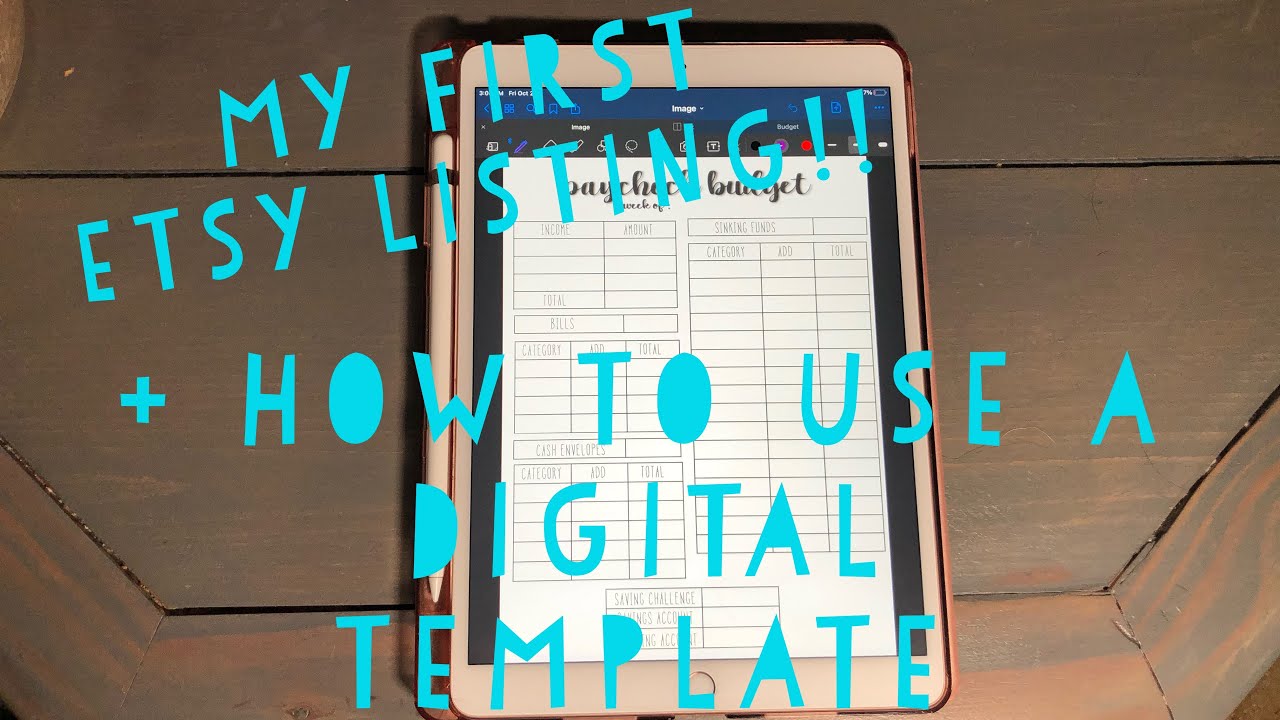 MY FIRST
ETSY LISTING!!
+ HOW TO USE A
DIGITAL
TEMPLATE
Fri Oct
7%
Image
Image
Budget
paycheck budget
week of:
INCOME AMOUNT
TOTAL
BILLS
CATEGORY ADD TOTAL
CASH ENVELOPES
CATEGORY ADD TOTAL
SINKING FUNDS
CATEGORY ADD TOTAL
SAVING CHALLENGE
SAVINGS ACCOUNT
ACCOUNT